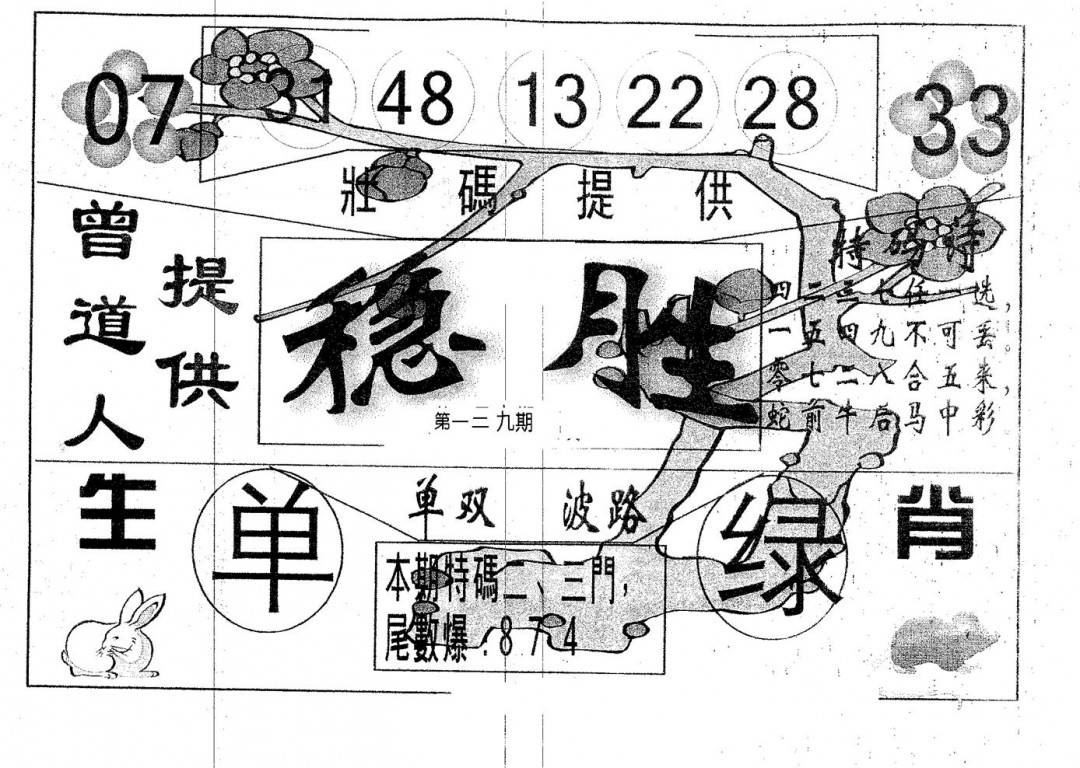 07 31 48 13 22 28 33
壯碼提供
曾道人
提供
稳胜
第一三九期
特碼诗
四二三七任一选，
一五四九不可丢。
零七二八合五来，
蛇前牛后马中彩
生肖
单
单双
波路
绿
本期特碼二、三門，
尾數爆：874